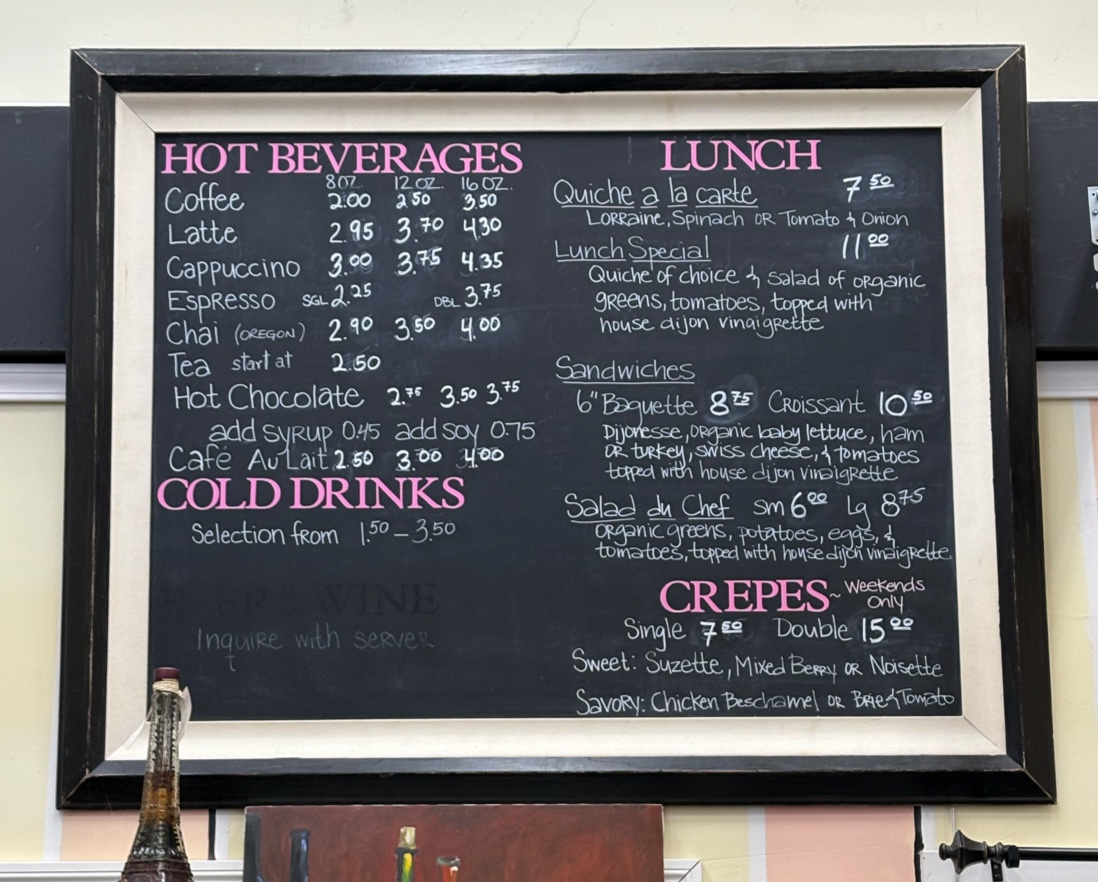 HOT BEVERAGES
8 OZ. 12 OZ. 16 OZ.
Coffee 2.00 2.50 3.50
Latte 2.95 3.70 4.30
Cappuccino 3.00 3.75 4.35
Espresso SGL 2.25 DBL 3.75
Chai (OREGON) 2.90 3.50 4.00
Tea start at 2.50
Hot Chocolate 2.75 3.50 3.75
add syrup 0.45 add soy 0.75
Café Au Lait 2.50 3.00 4.00
COLD DRINKS
Selection from 1.50 – 3.50
WINE
Inquire with server
LUNCH
Quiche a la carte 7 50
Lorraine, Spinach or Tomato & Onion
Lunch Special 11 00
Quiche of choice & salad of organic
greens, tomatoes, topped with
house dijon vinaigrette
Sandwiches
6" Baquette 8 75 Croissant 10 50
Dijonesse, organic baby lettuce, ham
or turkey, swiss cheese, & tomatoes
topped with house dijon vinaigrette
Salad du Chef sm 6 00 Lg 8 75
organic greens, potatoes, eggs, &
tomatoes, topped with house dijon vinaigrette.
CREPES ~ Weekends
Only
Single 7 50 Double 15 00
Sweet: Suzette, Mixed Berry or Noisette
Savory: Chicken Beschamel or Brie & Tomato